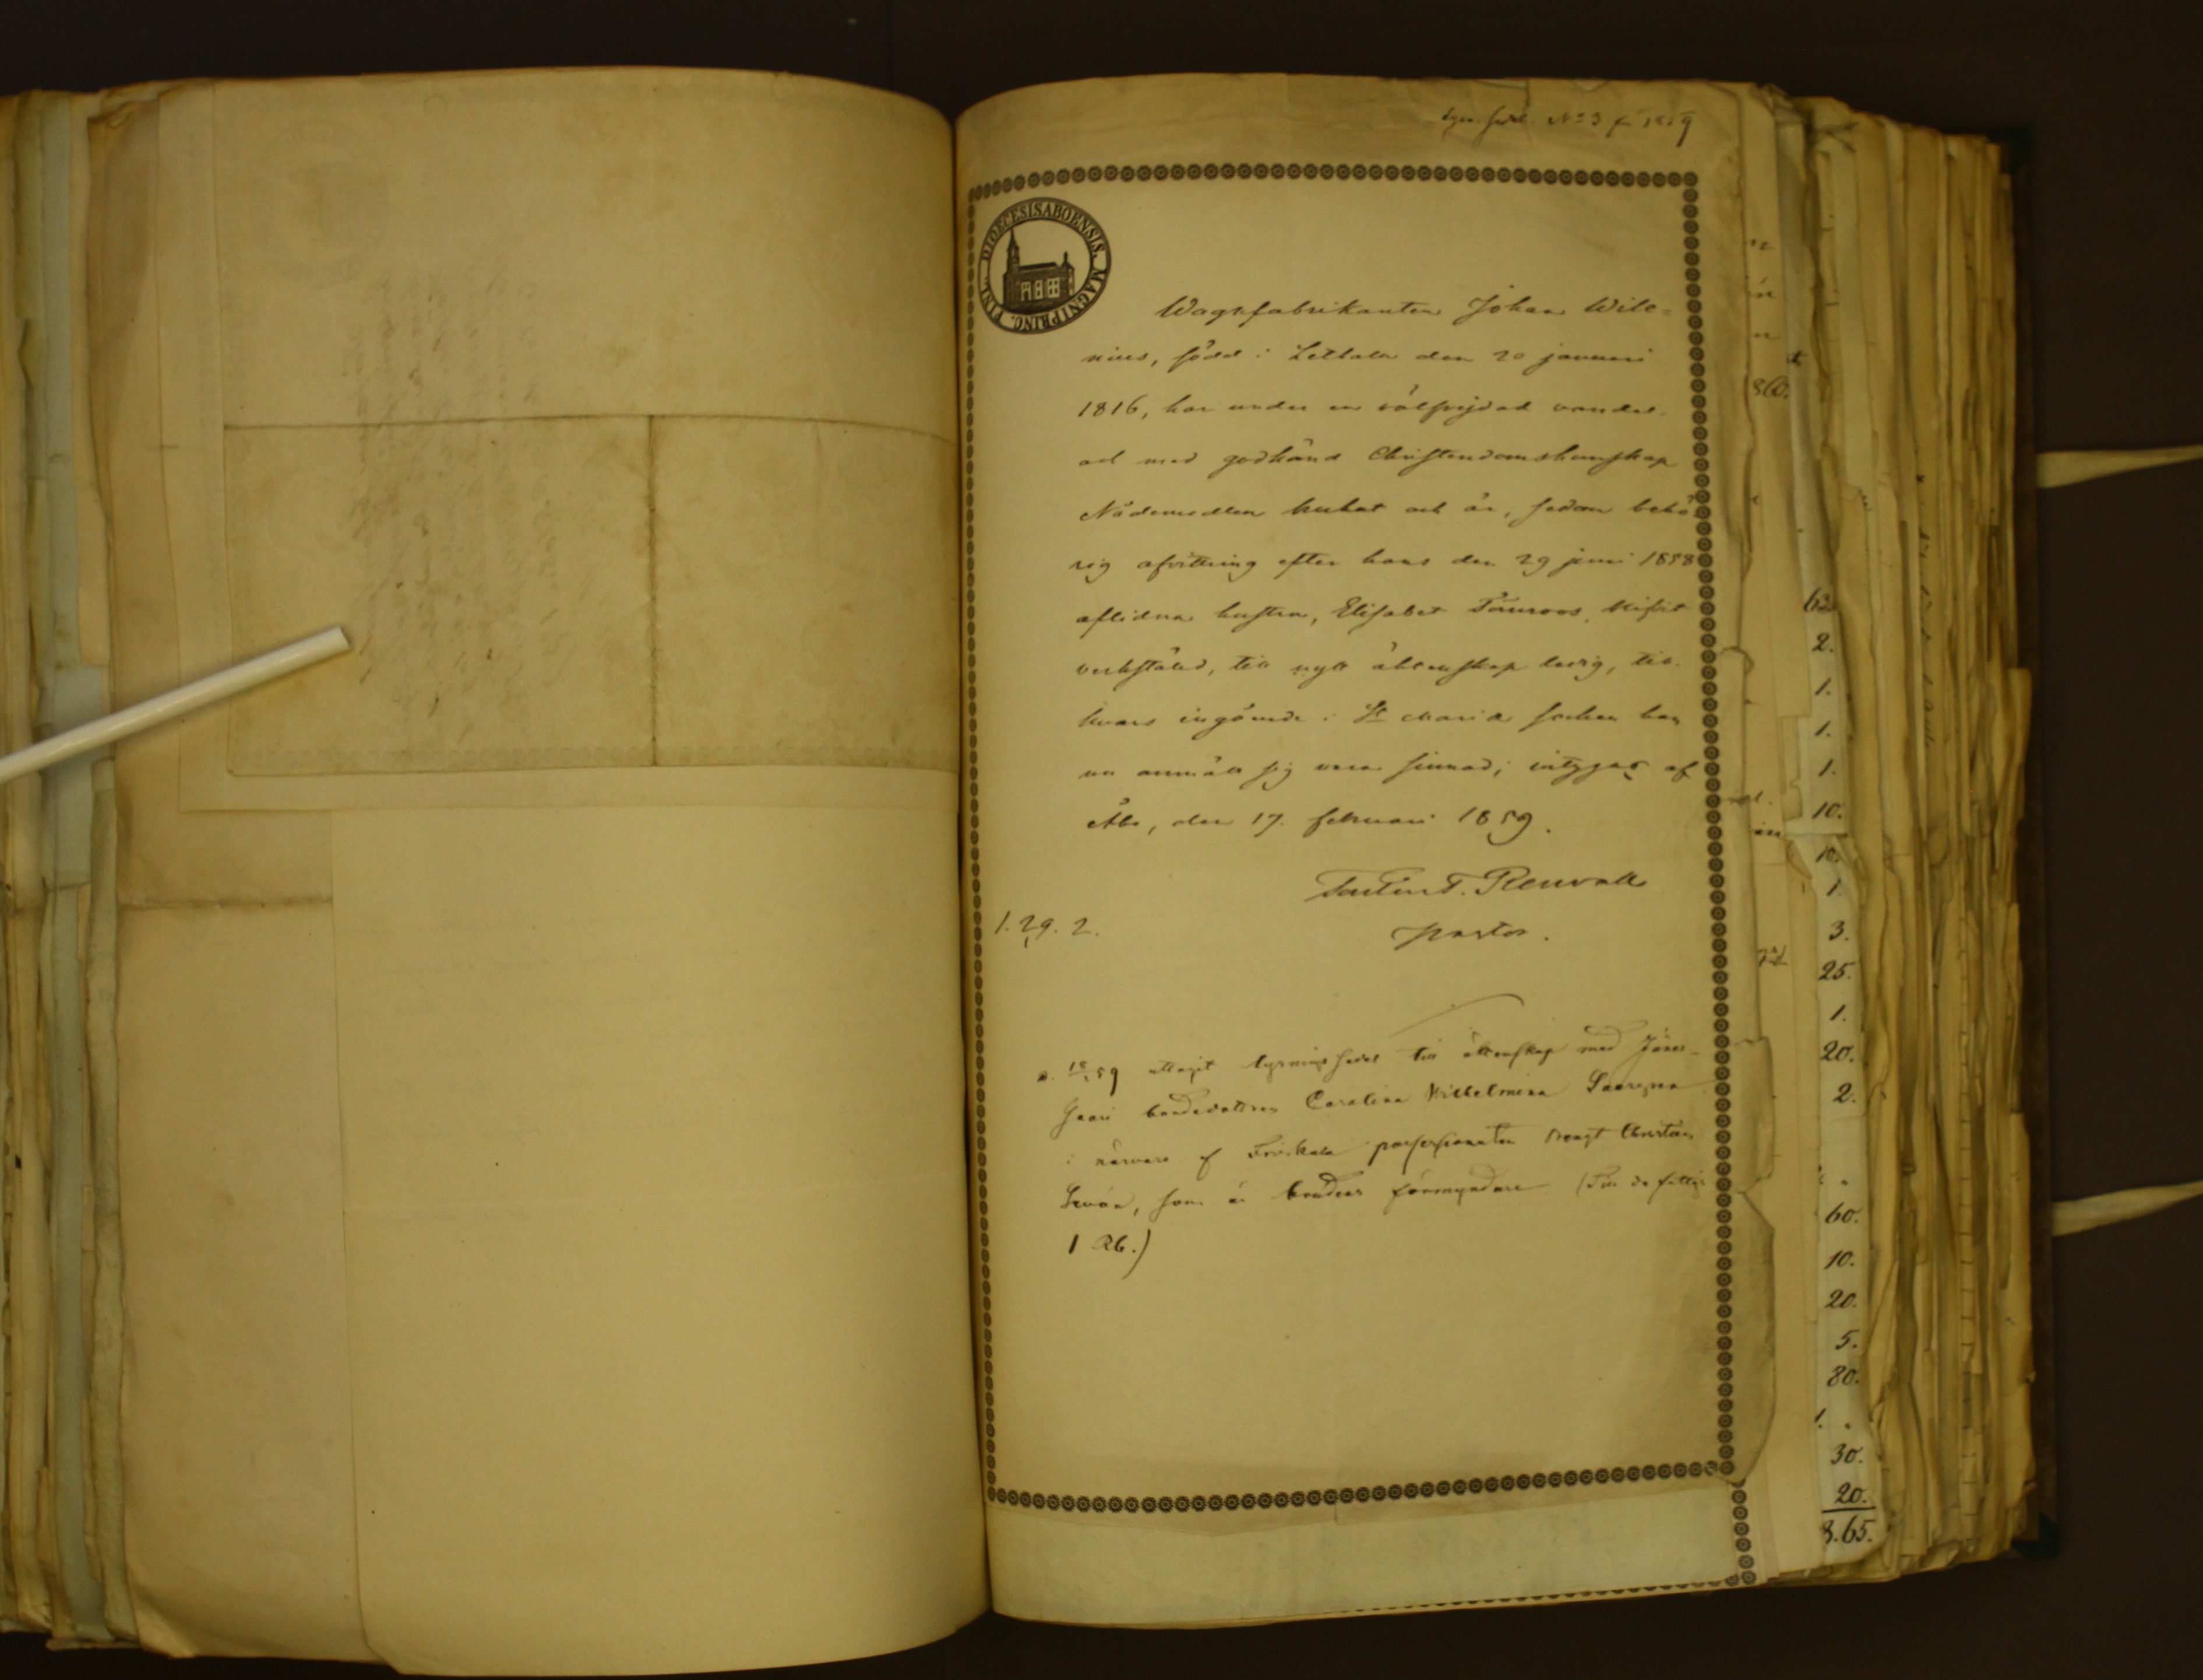 N:o 3 för 1859
DIOECESIS ABOENSIS. MAGNI PRINC. FINL.
Wagnfabrikanten Johan Wile-
nius, född i Letala den 20 januari
1816, har under en välfrejdad vandel
och med godkänd Christendomskunskap
Nådemedlen brukat och är, sedan behö-
rig afvittring efter hans den 29 juni 1858
aflidna hustru, Elisabet Törnroos, blifvit
verkstäld, till nytt äktenskap ledig, till
hvars ingående i S:t Marie socken han
nu anmält sig vara sinnad; intygas af
Åbo, den 17. februari 1859.
T. Renvall
Pastor.
1. 29. 2.
59 uttagit lysningssedel till äktenskap med
bondedottren Carolina Wilhelmina
i närvaro af possessionaten Bengt Christian
som är brudens förmyndare. (Till de fattiga
1 Rb.)
860.
63
2.
1.
1.
1.
10.
10.
1.
3.
25.
1.
20.
2.
60.
10.
20.
5.
80.
1.
30.
20.
8.65.